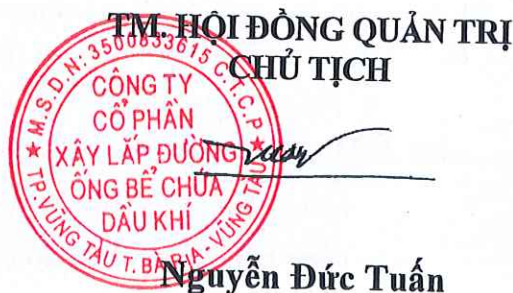 TM. HỘI ĐỒNG QUẢN TRỊ
CHỦ TỊCH
M.S.D.N: 3500833615 C.T.C.P
CÔNG TY
CỔ PHẦN
XÂY LẮP ĐƯỜNG
ỐNG BỂ CHỨA
DẦU KHÍ
TP.VŨNG TÀU T. BÀ RỊA - VŨNG TÀU
Nguyễn Đức Tuấn